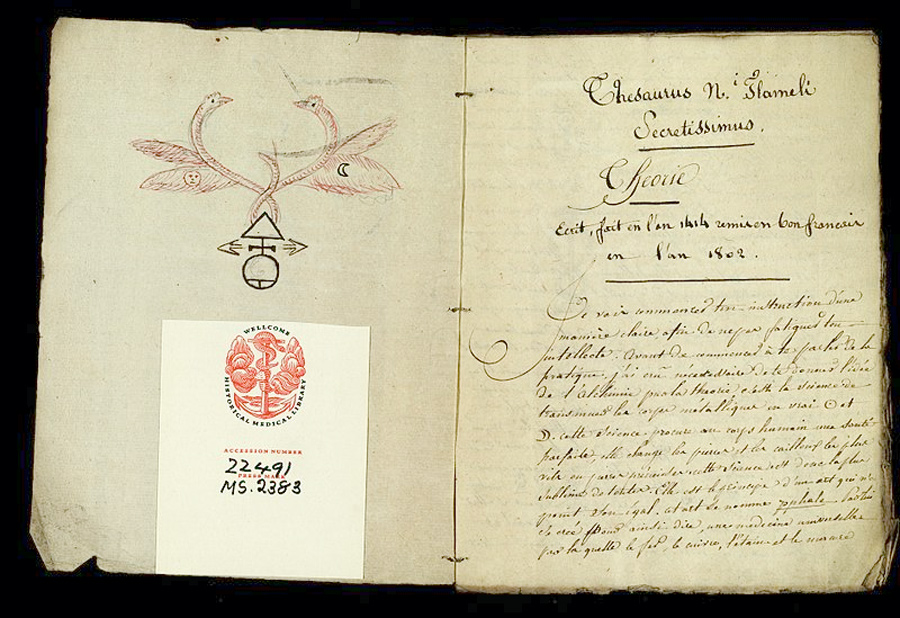 WELLCOME
HISTORICAL MEDICAL LIBRARY
ACCESSION NUMBER
22491
PRESS MARK
MS. 2383
Thesaurus N.i Flameli
Secretissimus.
Théorie
Ecrit, fait en l'an 1414 remis en bon francais
en l'an 1802.
Je vais commancer ton instruction d'une
maniere claire, afin de ne pas fatiguer ton
intellecte. avant de commencer à te parler de la
pratique, j'ai cru nécessaire de te donner l'idée
de l'alchimie par la théorie c'est la science de
transmuer les corps metallique en vrai ☉ et
☽. cette science procure au corps humain une santé
parfaite, elle change les pierres et les cailloux les plus
vils en pierres précieuses cette science est donc la plus
sublime de toutes. Elle est le principe d'un art qui n'a
point son égal. cet art se nomme
créé pour ainsi dire, une medecine universelle
par la quelle le fer, le cuivre, l'étain et le mercure